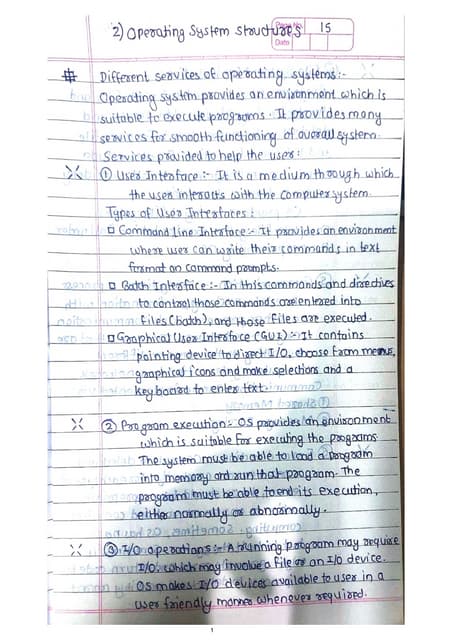 2) Operating System Structures
Page No. 15
Date
# Different services of operating systems:-
Operating system provides an environment which is
suitable to execute programs. It provides many
services for smooth functioning of overall system.
Services provided to help the user:
① User Interface :- It is a medium through which
the user interacts with the computer system.
Types of User Interfaces:
□ Command Line Interface:- It provides an environment
where user can write their commands in text
format on command prompts.
□ Batch Interface :- In this commands and directives
to control those commands are entered into
files (batch), and those files are executed.
□ Graphical User Interface (GUI):- It contains
pointing device to direct I/O, choose from menus,
graphical icons and make selections and a
keyboard to enter text.
② Program execution:- OS provides an environment
which is suitable for executing the programs.
The system must be able to load a program
into memory and run that program. The
program must be able to end its execution,
either normally or abnormally.
③ I/O operations:- A running program may require
I/O, which may involve a file or an I/O device.
OS makes I/O devices available to user in a
user friendly manner whenever required.
1